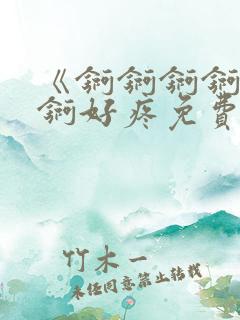 《锕锕锕锕
锕好疼免費
竹木一
未经同意禁止转载